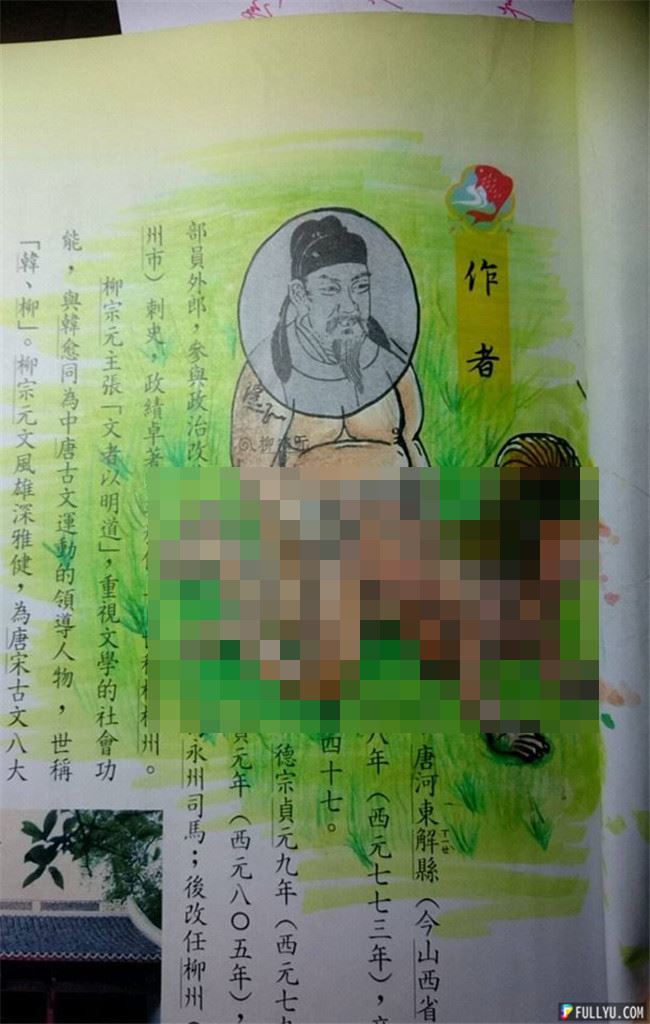 作者
唐河東解縣（今山西省
ㄒㄧㄝˋ
八年（西元七七三年），
四十七。
德宗貞元九年（西元七九
元年（西元八〇五年），
部員外郎，參與政治改
永州司馬；後改任柳州（
州市）刺史，政績卓著
州。
柳宗元主張「文者以明道」，重視文學的社會功
能，與韓愈同為中唐古文運動的領導人物，世稱
「韓、柳」。柳宗元文風雄深雅健，為唐宋古文八大
柳宗元
FULLYU.COM